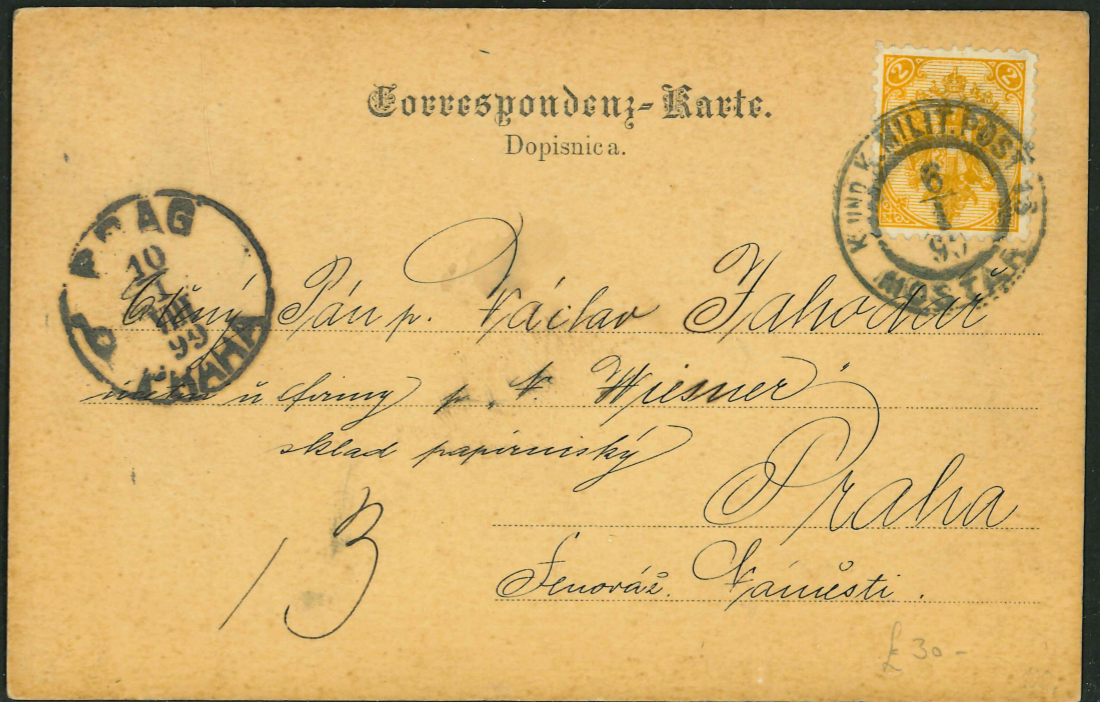 Correspondenz-Karte.
Dopisnica.
2 2
K. UND K. MILIT. POST 13
6
1
99
MOSTAR
PRAG
10
99
PRAHA
Ctěný Pán p. Václav Jahodář
u firmy p. „V. Wiesner"
sklad papírniský
Praha
Senováž. Náměsti.
13
£30-